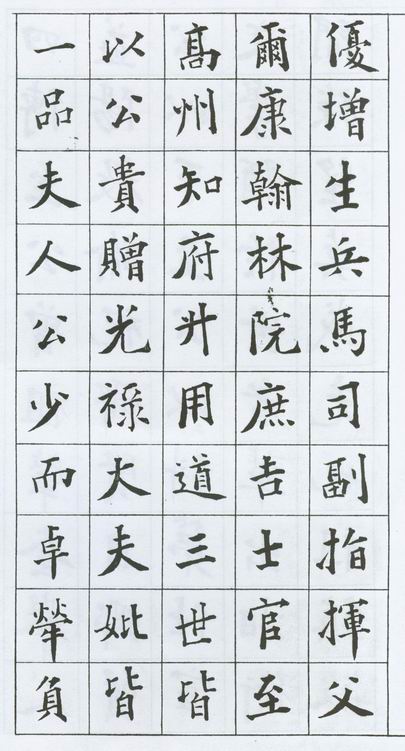 優增生兵馬司副指揮父
爾康翰林院庶吉士官至
髙州知府升用道三世皆
以公貴贈光祿大夫妣皆
一品夫人公少而卓犖負